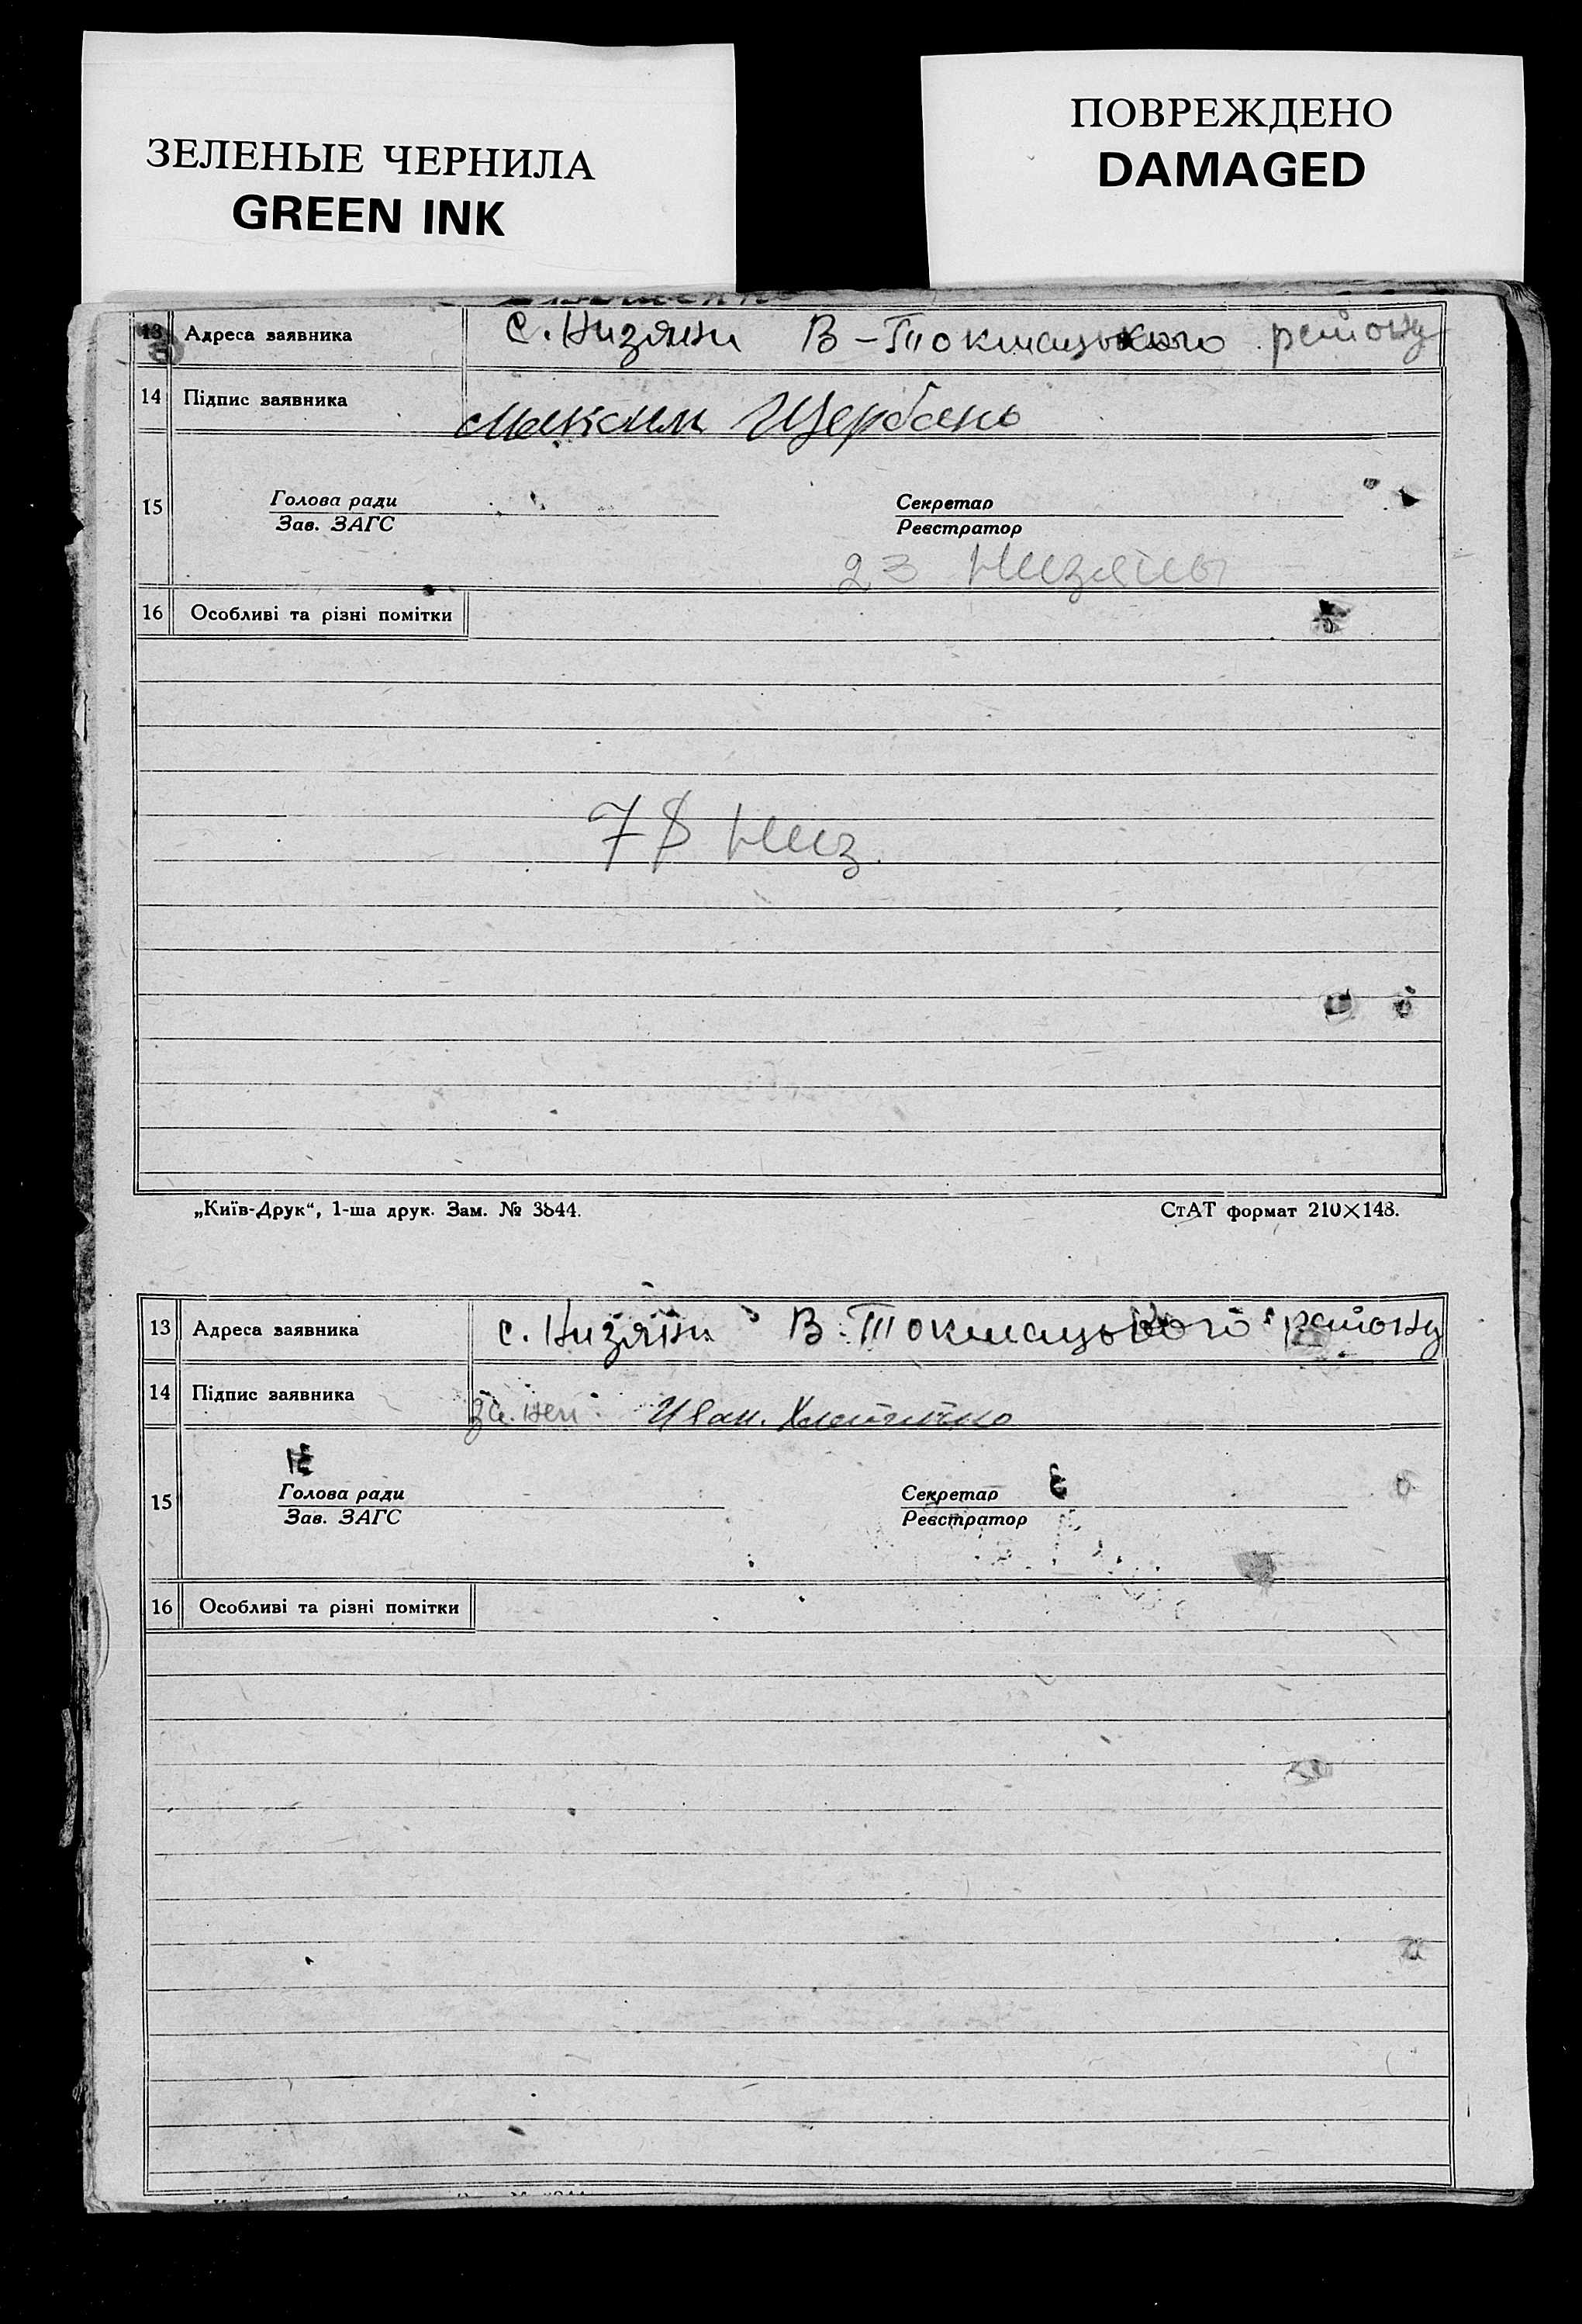 ЗЕЛЕНЫЕ ЧЕРНИЛА
GREEN INK
ПОВРЕЖДЕНО
DAMAGED
13 Адреса заявника с. Низяни В-Токмацького району
14 Підпис заявника Максим Щербань
Голова ради Секретар
15
Зав. ЗАГС Реєстратор
23 Низяны
16 Особливі та різні помітки
78 Низ.
„Київ-Друк“, 1-ша друк. Зам. № 3844. СтАТ формат 210×148.
13 Адреса заявника с. Низяни В. Токмацького району
14 Підпис заявника за неи Иван.
Голова ради Секретар
15
Зав. ЗАГС Реєстратор
16 Особливі та різні помітки